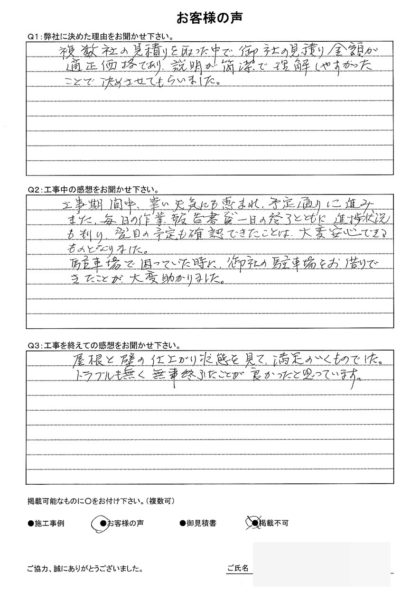 お客様の声
Q1:弊社に決めた理由をお聞かせ下さい。
複数社の見積りを取った中で、御社の見積り金額が
適正価格であり、説明が簡潔で理解しやすかった
ことで決めさせてもらいました。
Q2:工事中の感想をお聞かせ下さい。
工事期間中、幸い天気にも恵まれ、予定通りに進み
また、毎日の作業報告書が一日の終了とともに進捗状況
も判り、翌日の予定も確認できたことは、大変安心できる
ものとなりました。
駐車場で困っていた時に、御社の駐車場をお借りで
きたことが大変助かりました。
Q3:工事を終えての感想をお聞かせ下さい。
屋根と壁の仕上がり状態を見て、満足のいくものでした。
トラブルも無く無事終了したことが良かったと思っています。
掲載可能なものに〇をお付け下さい。(複数可)
●施工事例 ●お客様の声 ●御見積書 ●掲載不可
ご協力、誠にありがとうございました。 ご氏名